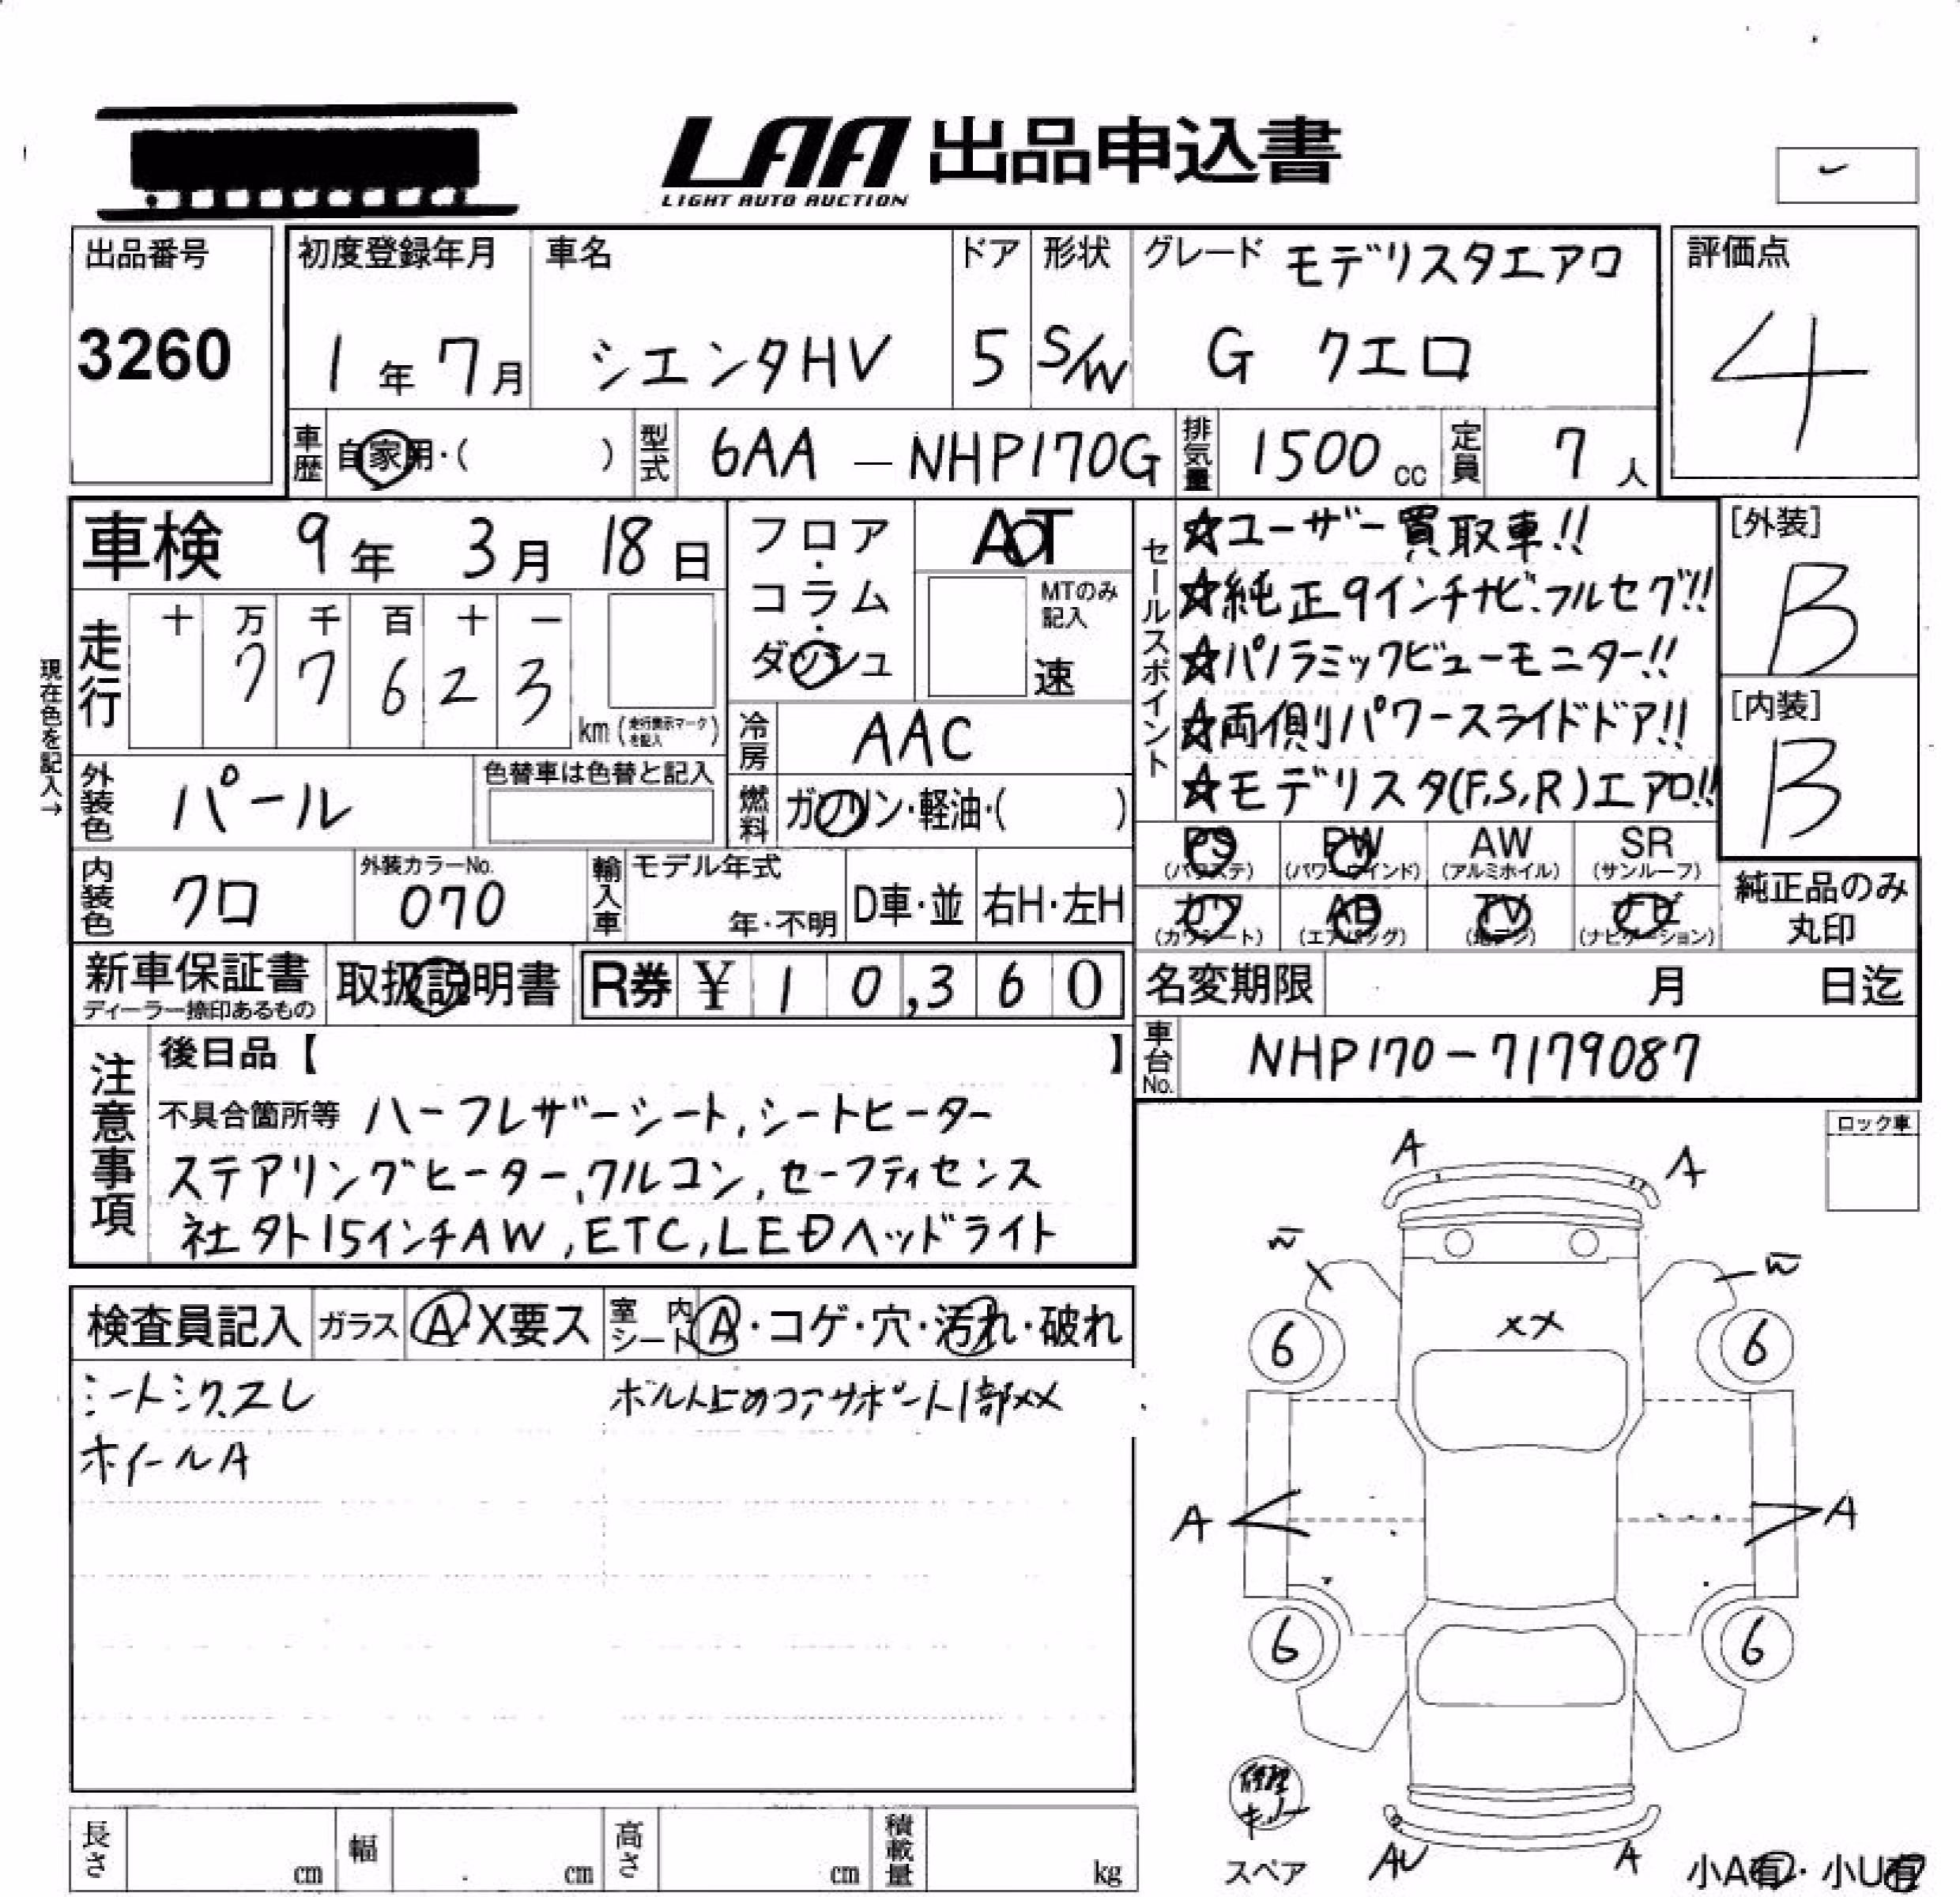 LAA 出品申込書
LIGHT AUTO AUCTION
出品番号
3260
初度登録年月
1年 7月
車名
シエンタHV
ドア
5
形状
S/W
グレード モデリスタエアロ
G クエロ
評価点
4
車歴 自家用・( )
型式 6AA - NHP170G
排気量 1500cc
定員 7人
車検 9年 3月 18日
フロア・コラム・ダッシュ
AT
MTのみ記入
速
走行
十 万 千 百 十 一
7 7 6 2 3
km (走行表示マークを記入)
現在色を記入→
冷房 AAC
燃料 ガソリン・軽油・( )
外装色 パール
色替車は色替と記入
内装色 クロ
外装カラーNo.
070
輸入車
モデル年式
年・不明
D車・並
右H・左H
セールスポイント
☆ユーザー買取車!!
☆純正9インチナビ、フルセグ!!
☆パノラミックビューモニター!!
☆両側パワースライドドア!!
☆モデリスタ(F,S,R)エアロ!!
[外装]
B
[内装]
B
PS (パワステ)
PW (パワーウインド)
AW (アルミホイル)
SR (サンルーフ)
カワ (カワシート)
AB (エアバッグ)
TV (地デジ)
ナビ (ナビゲーション)
純正品のみ
丸印
新車保証書
ディーラー捺印あるもの
取扱説明書
R券 ¥ 10,360
名変期限 月 日迄
車台No. NHP170-7179087
注意事項
後日品【 】
不具合箇所等 ハーフレザーシート,シートヒーター
ステアリングヒーター,クルコン,セーフティセンス
社外15インチAW,ETC,LEDヘッドライト
ロック車
検査員記入 ガラス A・X要ス 室内シート A・コゲ・穴・汚れ・破れ
シートシミ,スレ
ホイールA
ボルト止めコアサポート1部××
A
A
W
W
××
6
6
A
A
6
6
修理キット
スペア
AU
A
小A有・小U有
長さ cm
幅 cm
高さ cm
積載量 kg